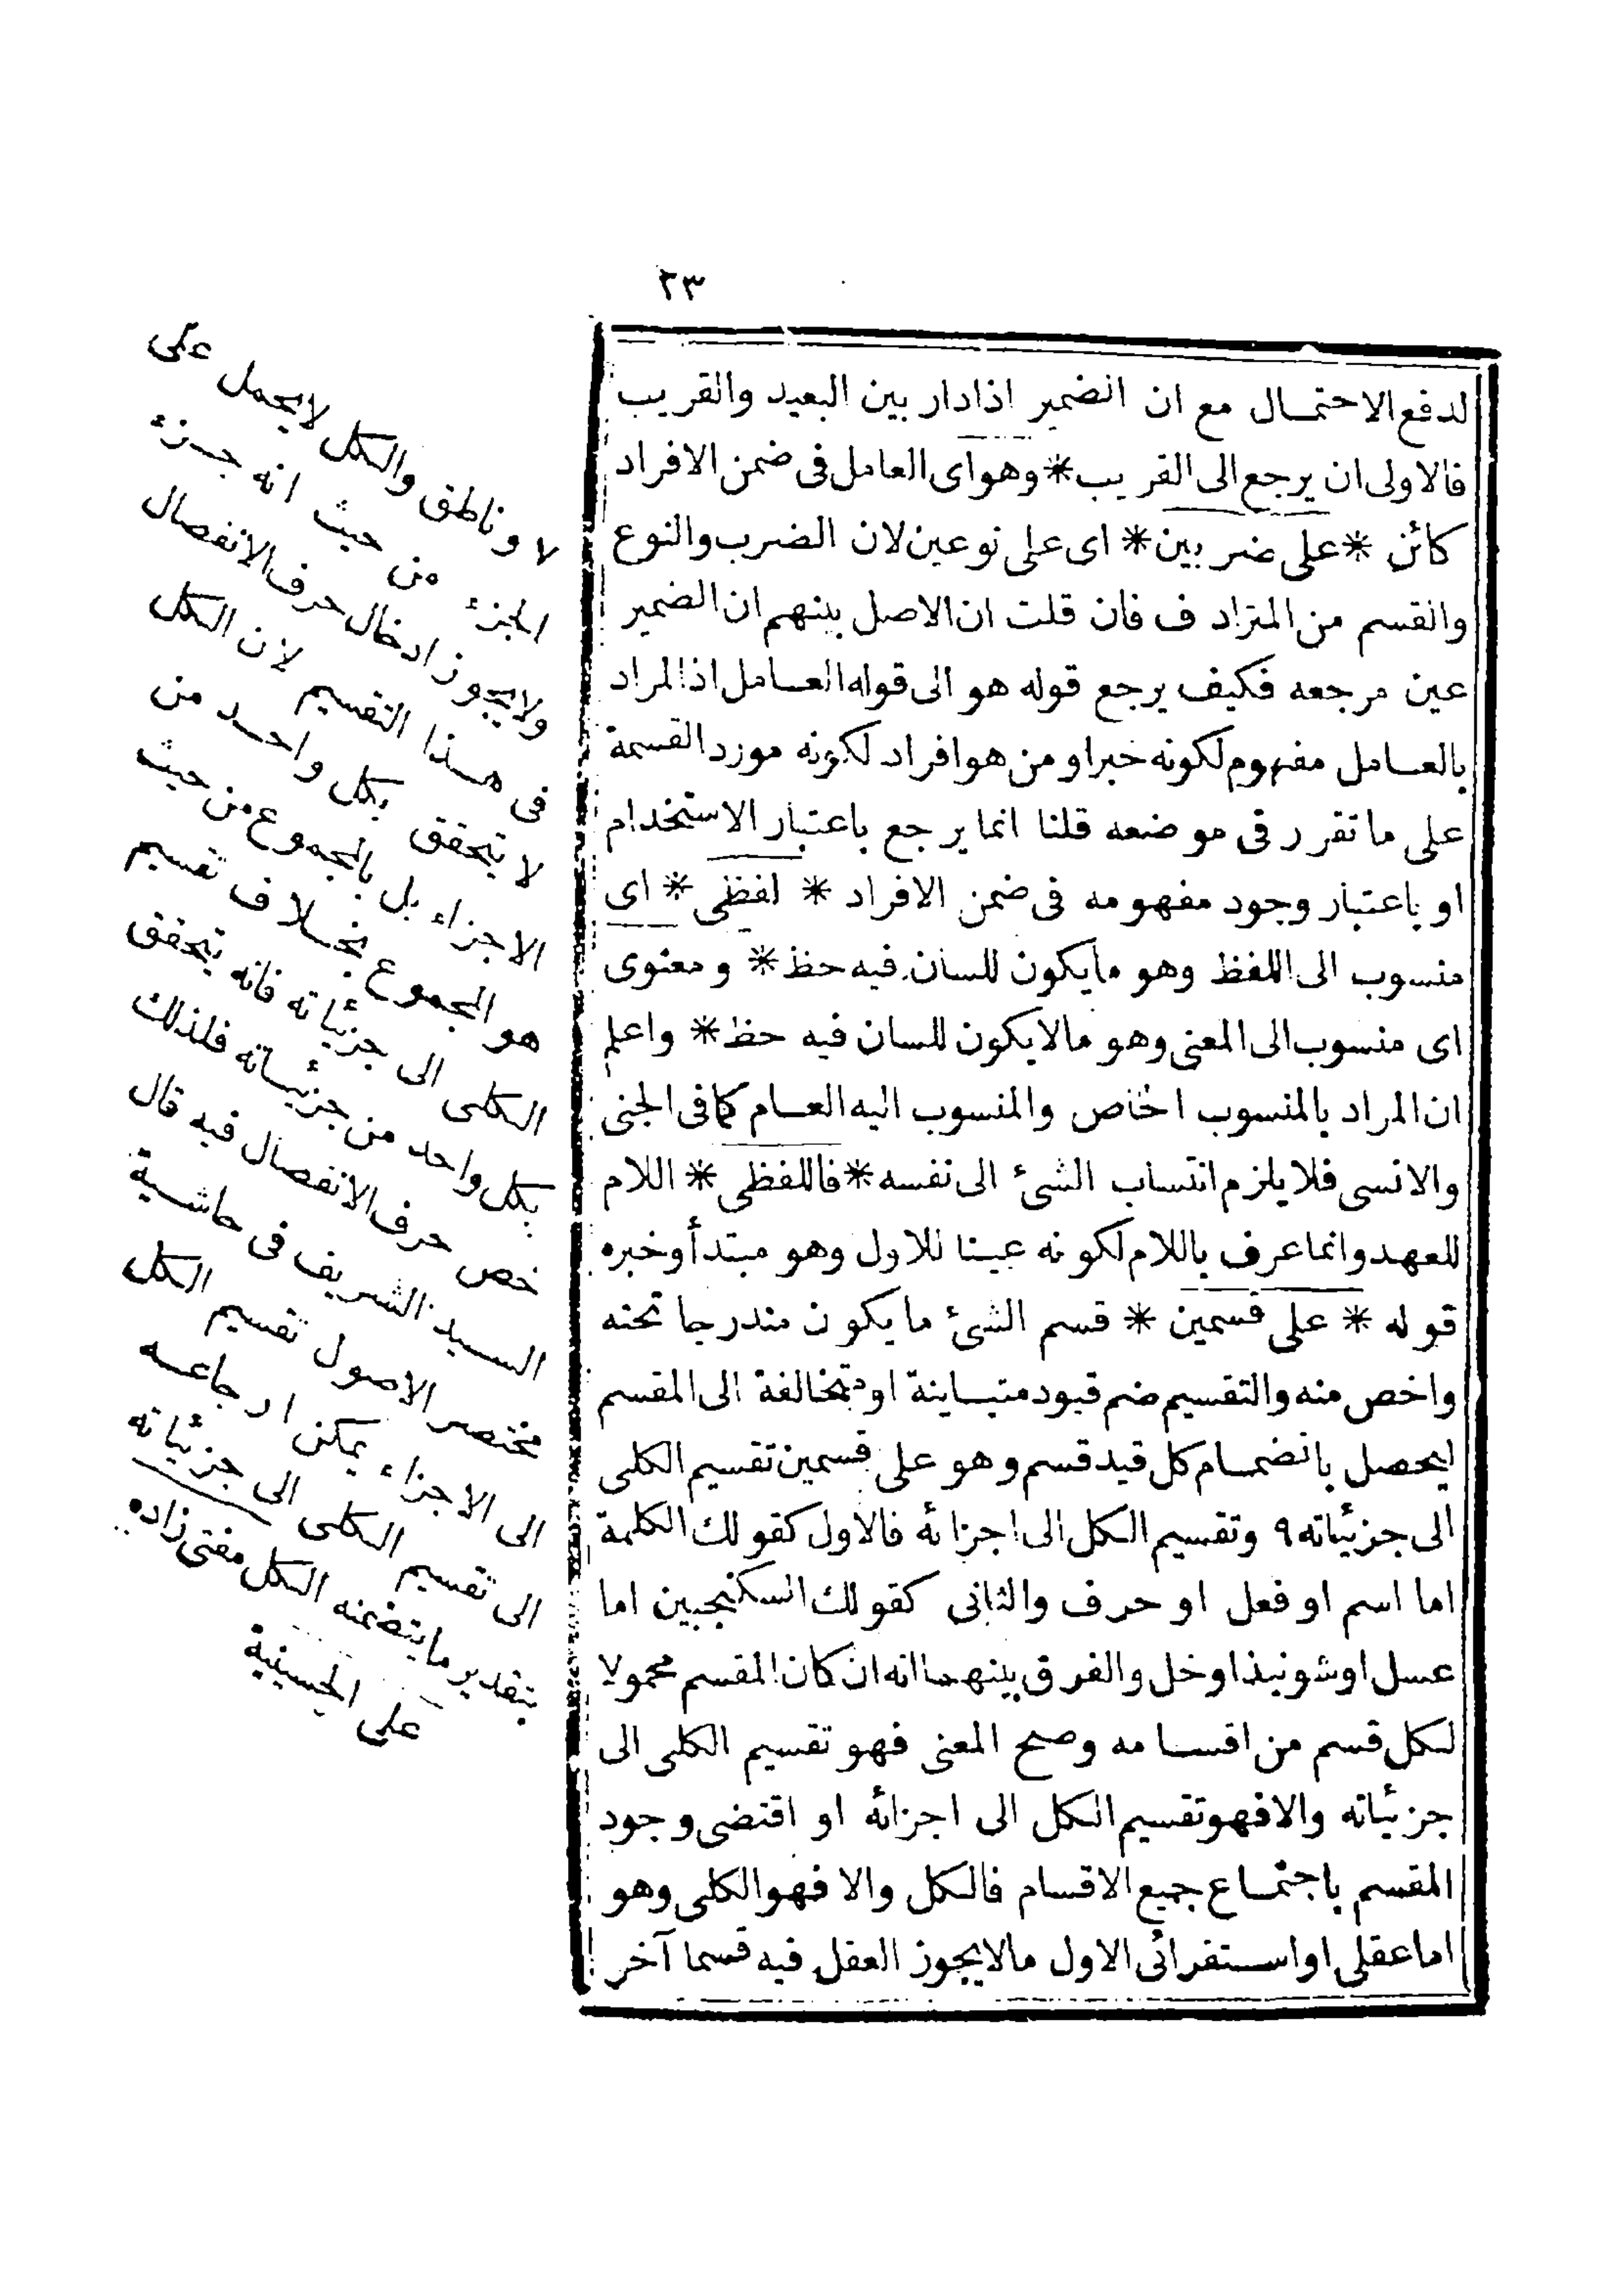 ٢٣
لدفع الاحتمال مع ان الضمير اذا دار بين البعيد والقريب
فالاولى ان يرجع الى القريب * وهو اى العامل فى ضمن الافراد
كائن * على ضربين * اى على نوعين لان الضرب والنوع
والقسم من المترادف فان قلت ان الاصل بينهم ان الضمير
عين مرجعه فكيف يرجع قوله هو الى قوله العامل اذ المراد
بالعامل مفهوم لكونه خبرا ومن هو افراد لكونه مورد القسمة
على ما تقرر فى موضعه قلنا انما يرجع باعتبار الاستخدام
او باعتبار وجود مفهومه فى ضمن الافراد * لفظى * اى
منسوب الى اللفظ وهو ما يكون للسان فيه حظ * ومعنوى
اى منسوب الى المعنى وهو مالا يكون للسان فيه حظ * واعلم
ان المراد بالمنسوب الخاص والمنسوب اليه العام كما فى الجنى
والانسى فلا يلزم انتساب الشئ الى نفسه * فاللفظى * اللام
للعهد وانما عرف باللام لكونه عينا للاول وهو مبتدأ وخبره
قوله * على قسمين * قسم الشئ ما يكون مندرجا تحته
واخص منه والتقسيم ضم قيود متباينة او متخالفة الى المقسم
ليحصل بانضمام كل قيد قسم وهو على قسمين تقسيم الكلى
الى جزئياته ٩ وتقسيم الكل الى اجزائه فالاول كقولك الكلمة
اما اسم او فعل او حرف والثانى كقولك السكنجبين اما
عسل او شونيذ او خل والفرق بينهما انه ان كان المقسم محمولا
لكل قسم من اقسامه وصح المعنى فهو تقسيم الكلى الى
جزئياته والا فهو تقسيم الكل الى اجزائه او اقتضى وجود
المقسم باجتماع جميع الاقسام فالكل والا فهو الكلى وهو
اما عقلى او استقرائى الاول مالا يجوز العقل فيه قسما آخر
لا وناطق والكل لا يحمل على
الجزء من حيث انه جزء
ولا يجوز ادخال حرف الانفصال
فى هذا التقسيم لان الكل
لا يتحقق بكل واحد من
الاجزاء بل بالمجموع من حيث
هو المجموع بخلاف تقسيم
الكلى الى جزئياته فانه يتحقق
بكل واحد من جزئياته فلذلك
خص حرف الانفصال فيه قال
السيد الشريف فى حاشية
مختصر الاصول تقسيم الكل
الى الاجزاء يمكن ارجاعه
الى تقسيم الكلى الى جزئياته
بتقدير ما يتضمنه الكل مفتى زاده
على الحسينية